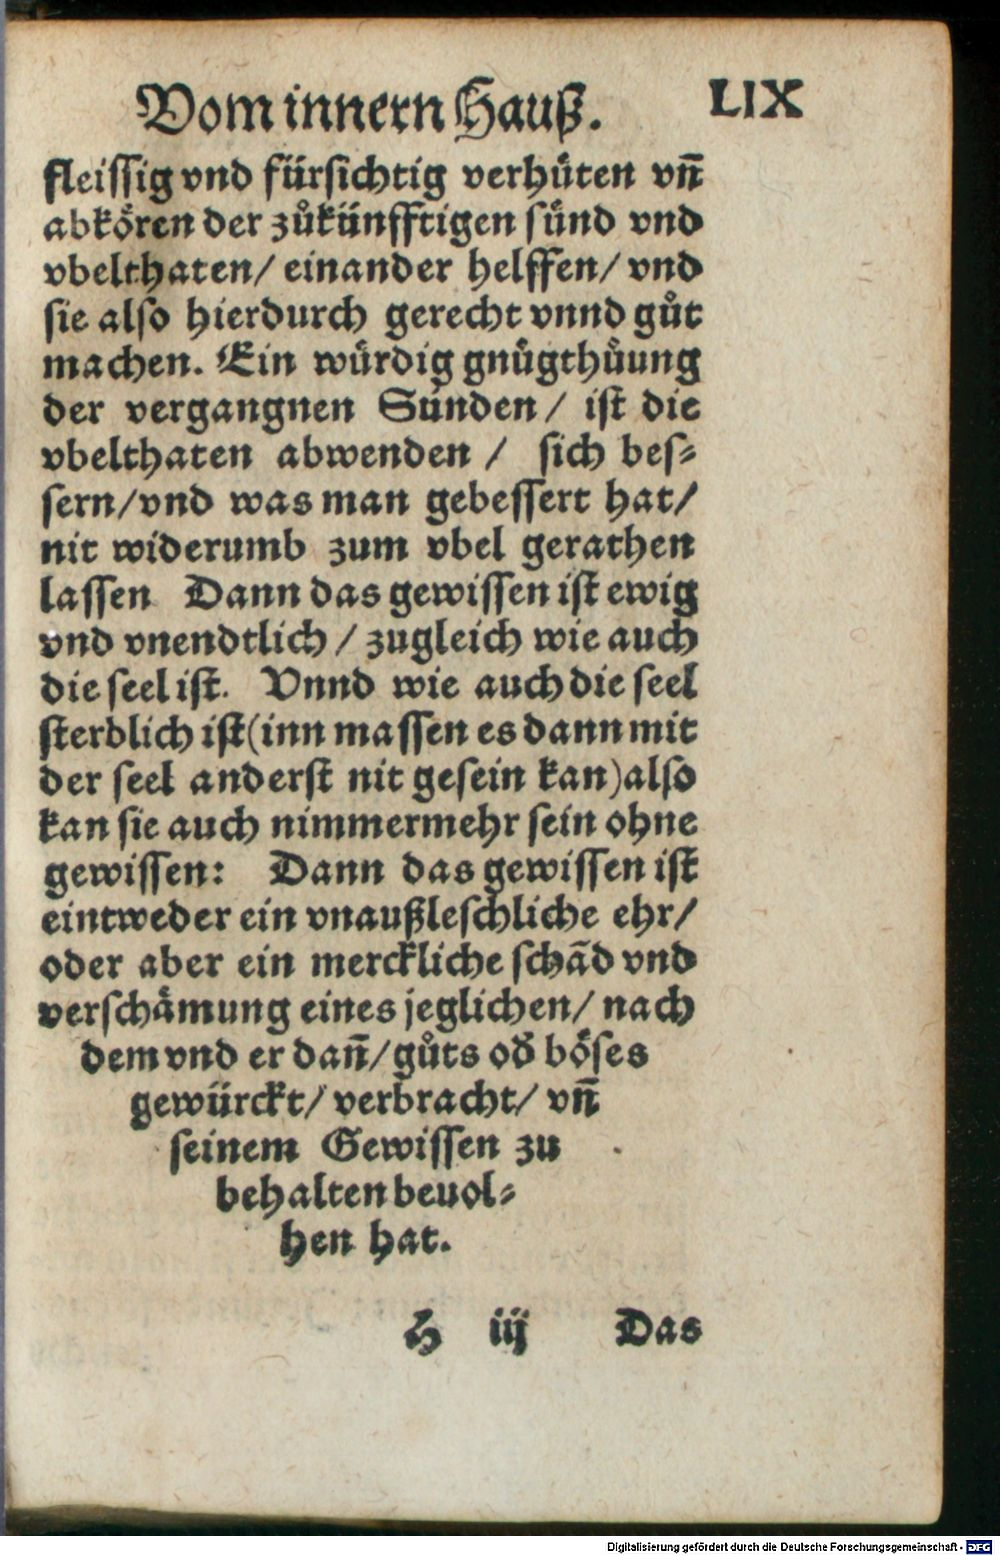 Vom innern Hauß. LIX
fleissig vnd fürsichtig verhuͤten vn̄
abkoͤren der zuͦkünfftigen sünd vnd
vbelthaten/ einander helffen/ vnd
sie also hierdurch gerecht vnnd guͦt
machen. Ein würdig gnuͤgthuͦung
der vergangnen Sünden/ ist die
vbelthaten abwenden / sich bes⸗
sern/vnd was man gebessert hat/
nit widerumb zum vbel gerathen
lassen Dann das gewissen ist ewig
vnd vnendtlich / zugleich wie auch
die seel ist. Vnnd wie auch die seel
sterblich ist(inn massen es dann mit
der seel anderst nit gesein kan)also
kan sie auch nimmermehr sein ohne
gewissen: Dann das gewissen ist
eintweder ein vnaußleschliche ehr/
oder aber ein merckliche schād vnd
verschaͤmung eines jeglichen/ nach
dem vnd er dan̄/guͦts od̓ boͤses
gewürckt/ verbracht/ vn̄
seinem Gewissen zu
behalten beuol⸗
hen hat.
H iij Das
Digitalisierung gefördert durch die Deutsche Forschungsgemeinschaft - DFG